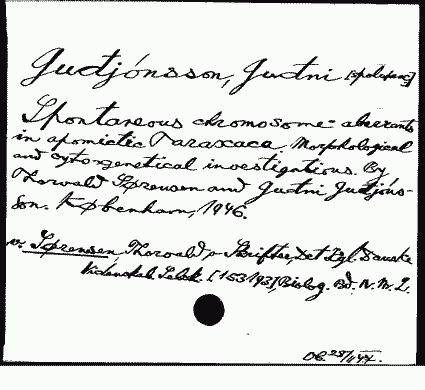 Gudjónsson, Gudni
Spontaneous chromosome-aberrants
in apomictic Taraxaca. Morphological
and cyto-genetical investigations. By
Thorvald Sørensen and Gudni Gudjóns-
son. København, 1946.
v. Sørensen, Thorvald, - Skrifter, Det Kgl. Danske
Vidensk. Selsk. [1531931], Biolog. Bd. IV. Nr. 2.